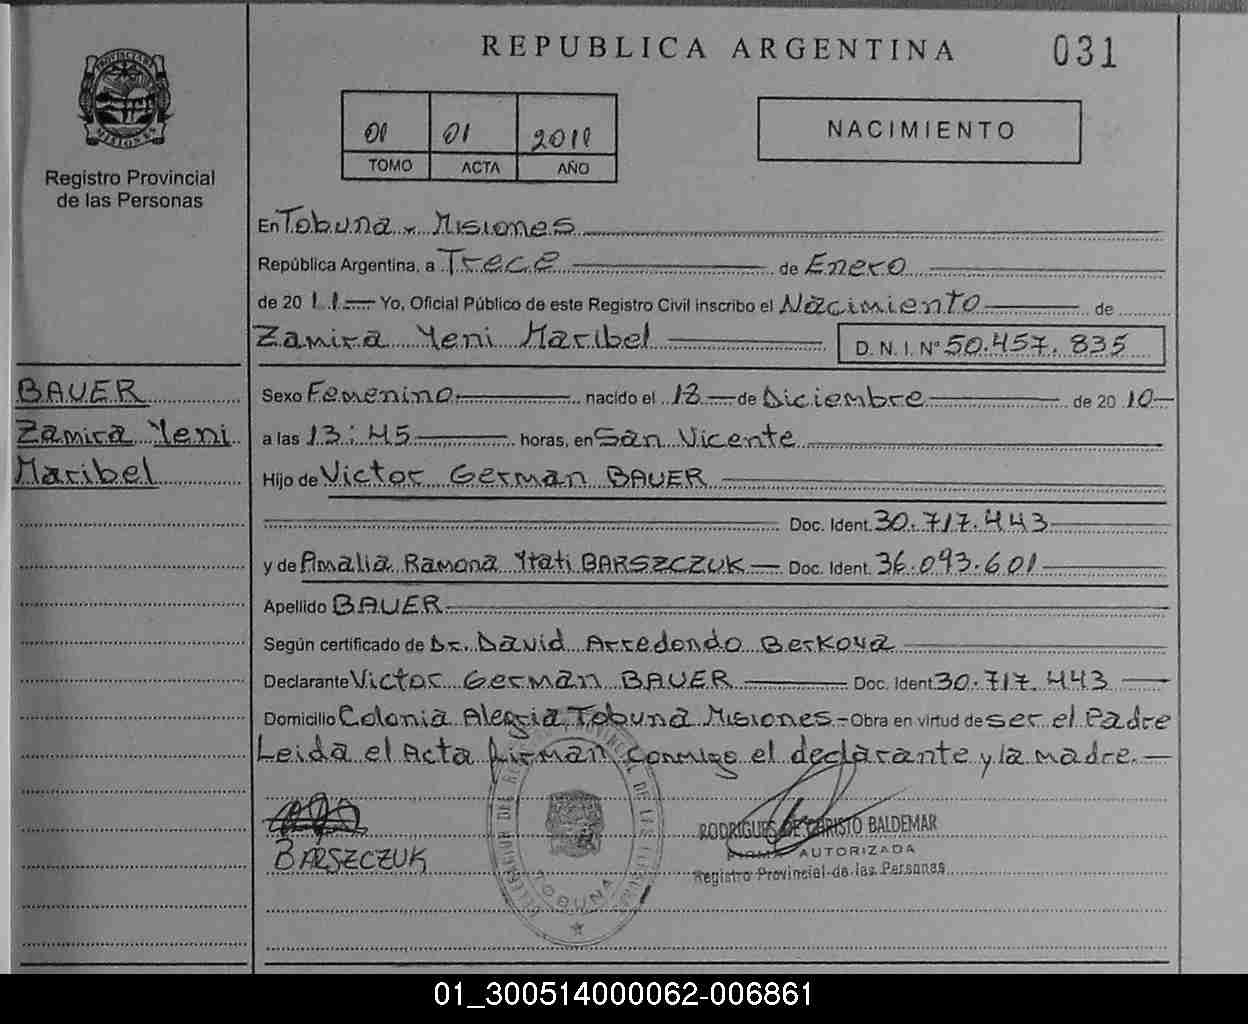 REPUBLICA ARGENTINA
031
PROVINCIA DE
MISIONES
Registro Provincial
de las Personas
01 01 2011
TOMO ACTA AÑO
NACIMIENTO
En Tobuna - Misiones
República Argentina, a Trece de Enero
de 2011 Yo, Oficial Público de este Registro Civil inscribo el Nacimiento de
Zamira Yeni Maribel D. N. I. Nº 50.457.835
BAUER
Zamira Yeni
Maribel
Sexo Femenino nacido el 13 de Diciembre de 2010
a las 13:45 horas, en San Vicente
Hijo de Victor German BAUER
Doc. Ident. 30.717.443
y de Amalia Ramona Ytati BARSZCZUK Doc. Ident. 36.093.601
Apellido BAUER
Según certificado de Dr. David Arredondo Berkova
Declarante Victor German BAUER Doc. Ident 30.717.443
Domicilio Colonia Alegria Tobuna Misiones.- Obra en virtud de ser el Padre
Leida el Acta firman conmigo el declarante y la madre.-
BARSZCZUK
TOBUNA
RODRIGUES DE CHRISTO BALDEMAR
FIRMA AUTORIZADA
Registro Provincial de las Personas
01_300514000062-006861